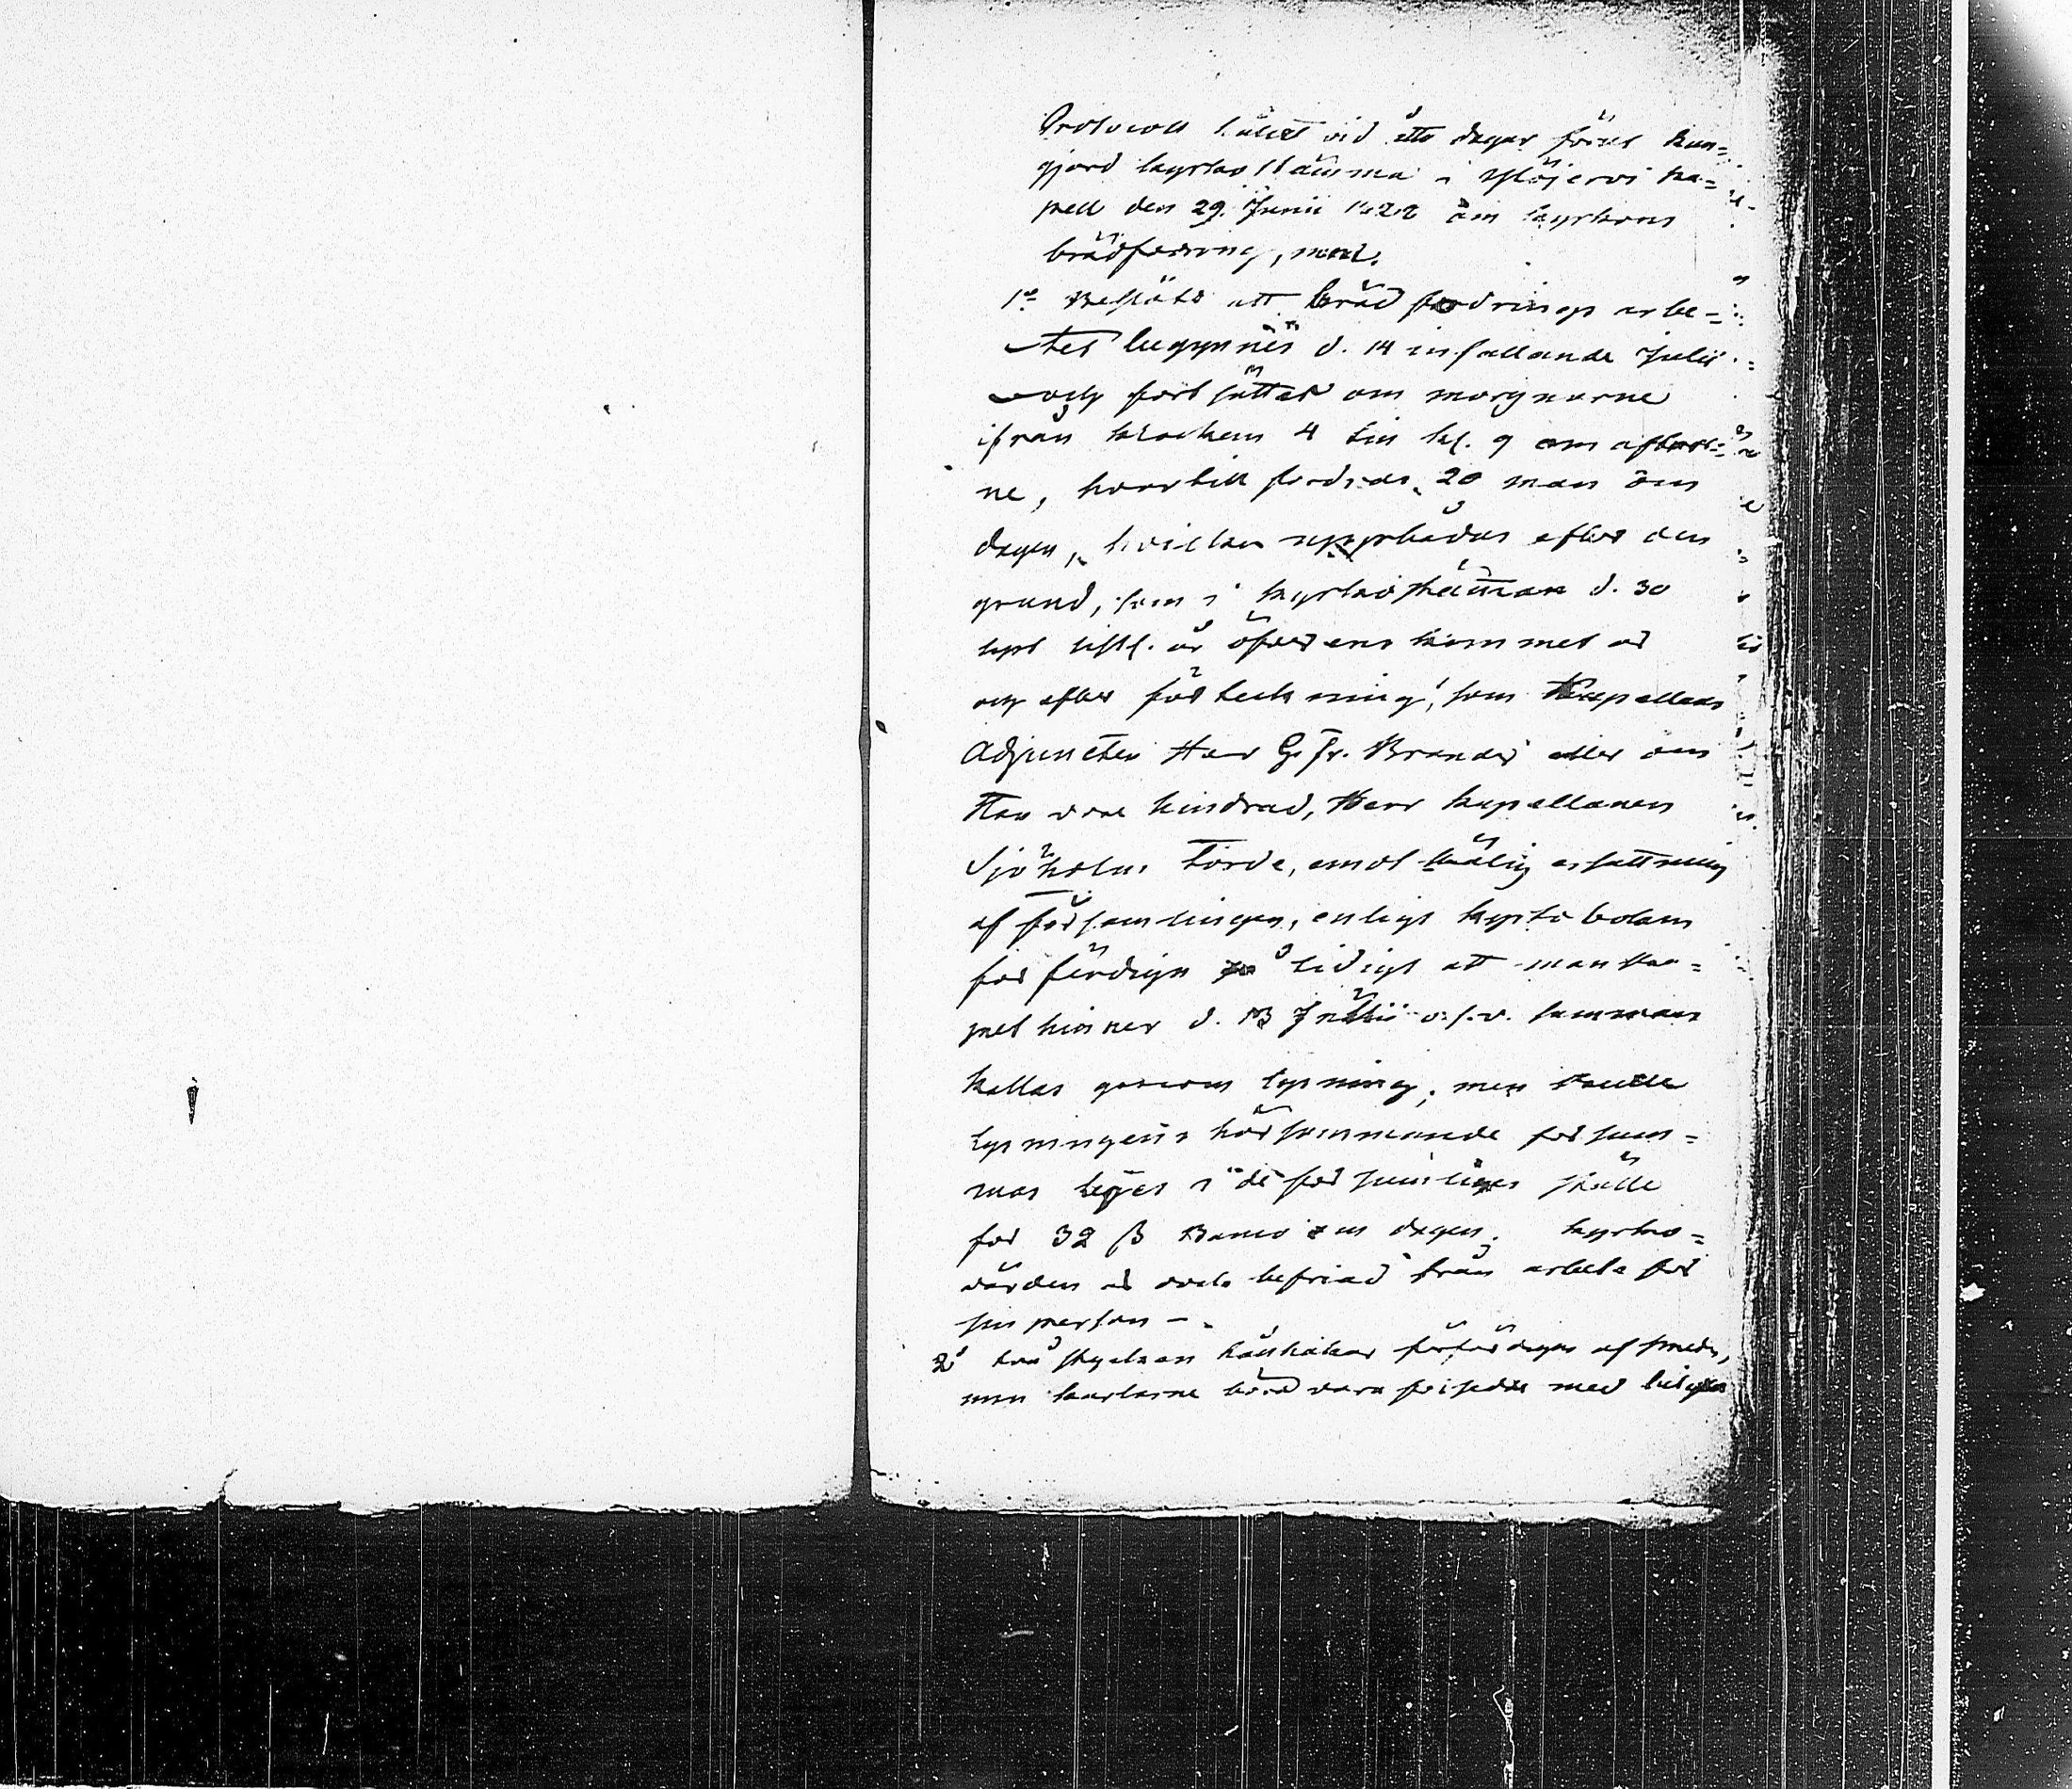 Protocoll hållet vid åtta dagar förut kun=
gjord kyrko stämma i Ylöjervi ka=
pell den 29. Junii 1822 om kyrkans
brädfodring, med.
1o Beslöts att bräd fodrings arbe=
tet begynnes d. 14 infallande Julii
och fortsättes om morgnarne
ifrån klockan 4 till kl. 9 om aftnar=
ne, hvartill fordras 20 man om
dagen, hvilka uppbådas efter den
grund, som i kyrkostämman d. 30
sistl. är öfverens kommet
och efter förteckning, som Kapellans
Adjuncten Herr G. Fr. Brander eller om
Han vore hindrad, Herr kapellanen
Sjöholm torde, emot skälig ersättning
af församlingen, enligt
förfärdiga så tidigt att manska=
pet hinner d. 13 Julii o.s.v. samman
kallas genom lysning; men skulle
lysningens hörsammande försum=
mas lejes i de försumliges ställe
för 32 ß Banco om dagen. Kyrko=
värden är ock befriad från arbete för
sin person –
2o Två stycken förfärdigas af smeden,
men karlarne böra vara försedde med